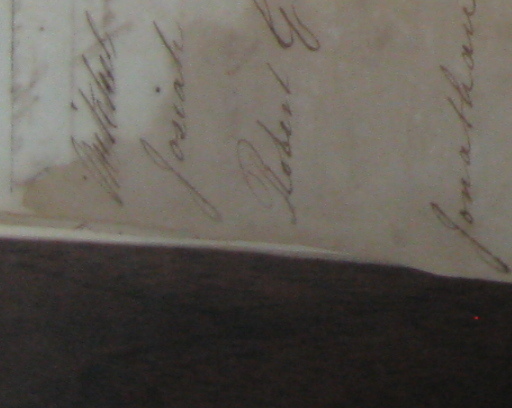 Josiah
Robert G
Jonathan